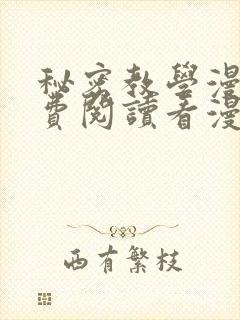 秘密教學漫
費閱讀看漫
西有繁枝